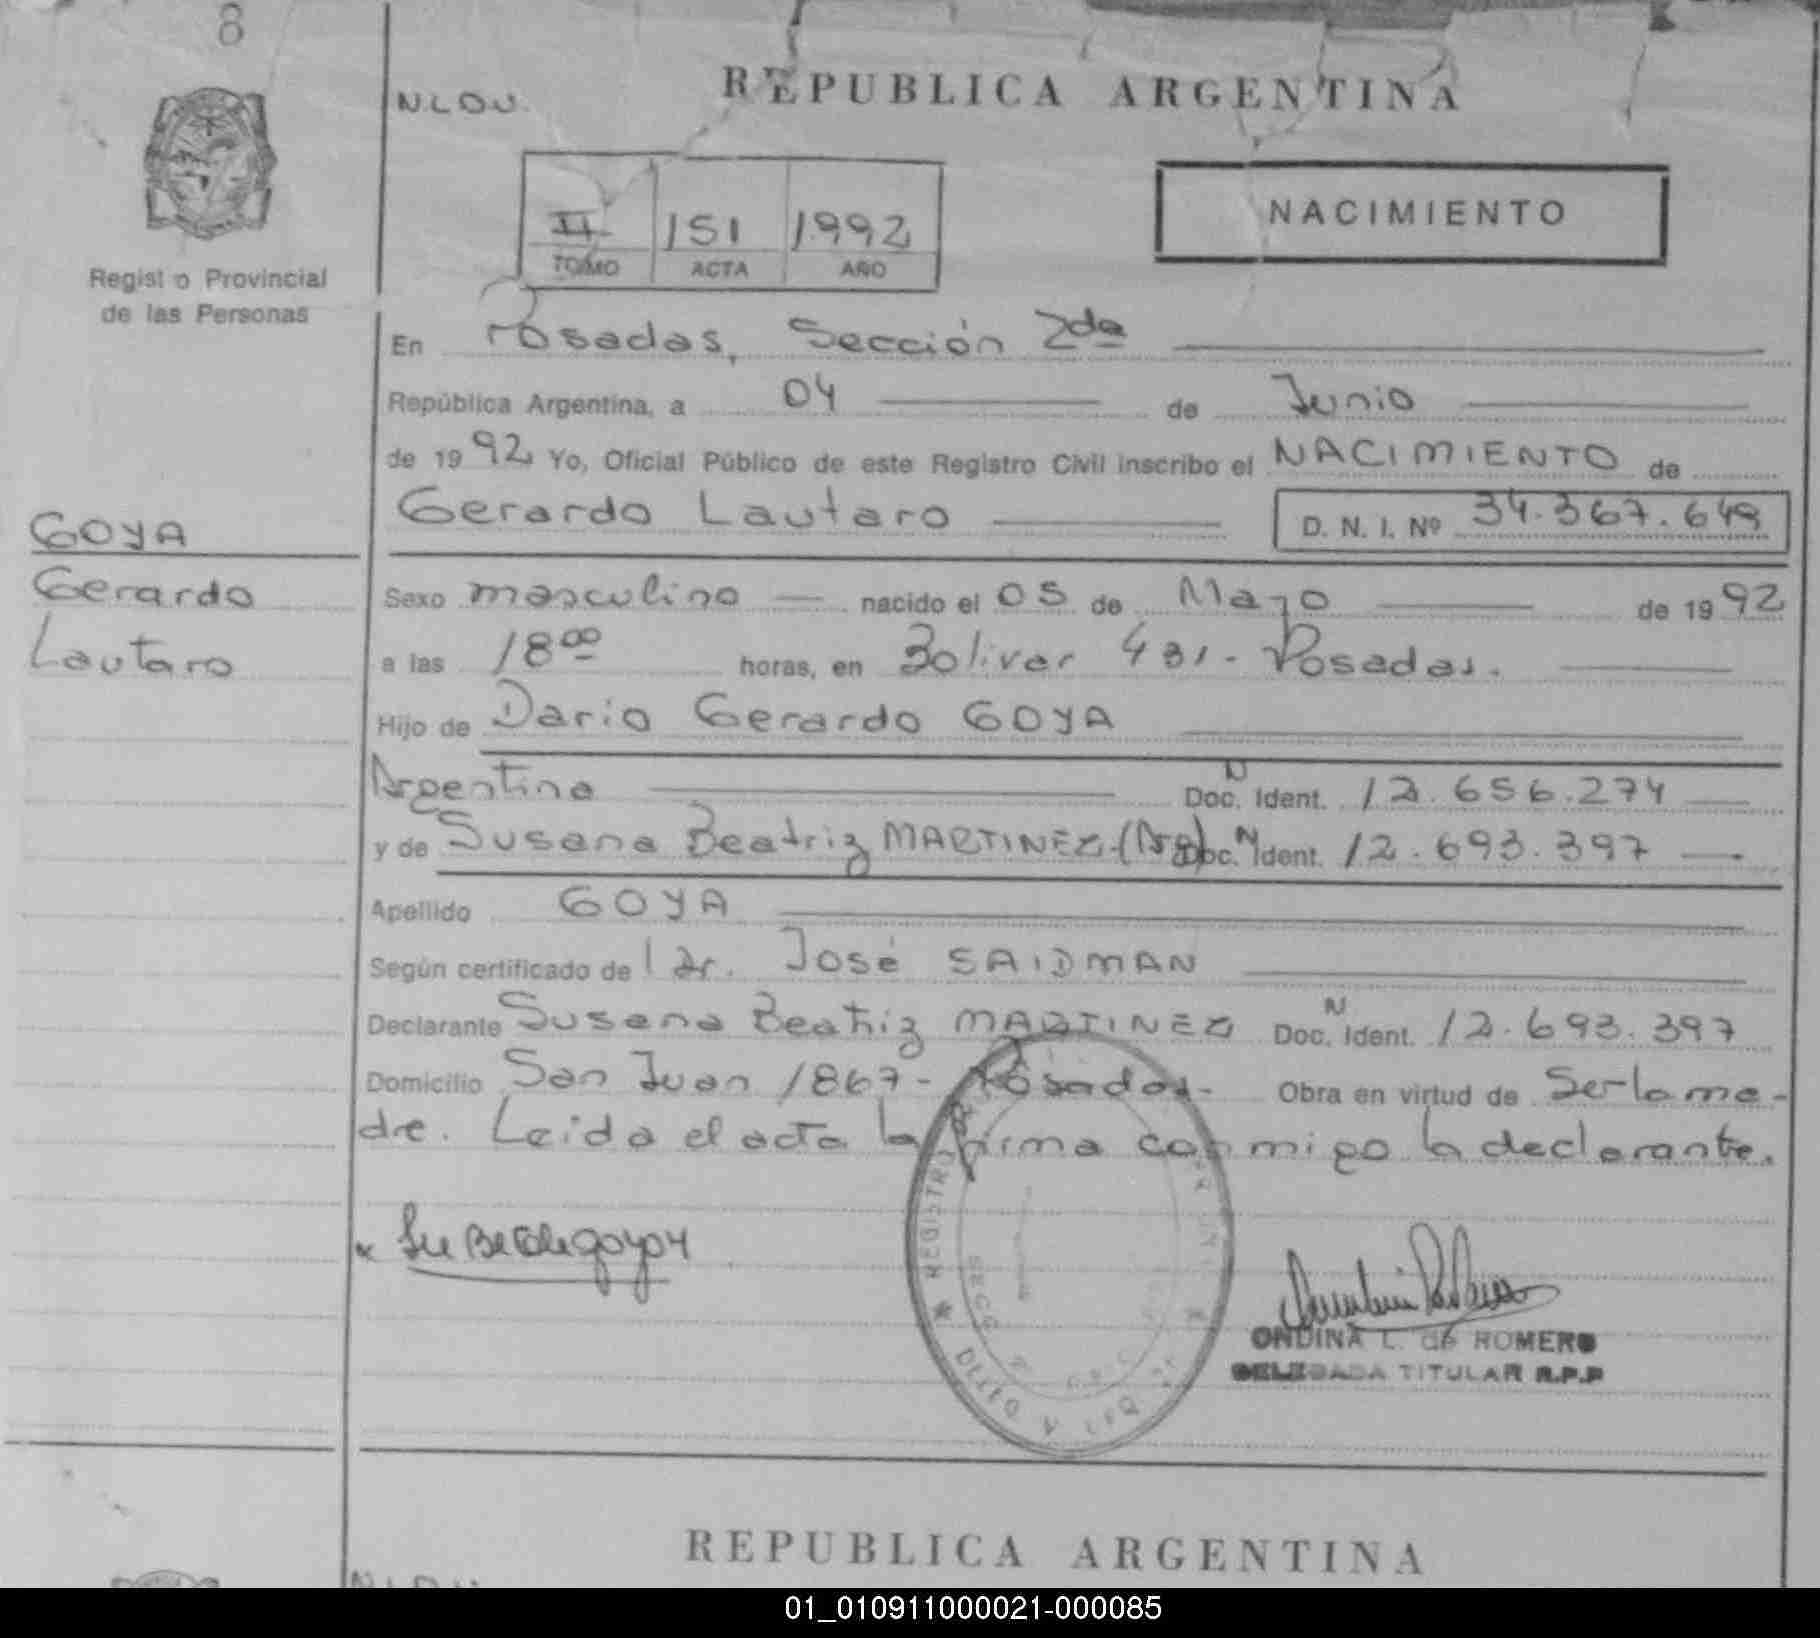 8
NLDU
REPUBLICA ARGENTINA
II 151 1992
TOMO ACTA AÑO
NACIMIENTO
Regist o Provincial
de las Personas
En Posadas, Sección 2da
República Argentina, a 04 de Junio
de 1992 Yo, Oficial Público de este Registro Civil inscribo el NACIMIENTO de
Gerardo Lautaro D. N. I. Nº 34.367.649
GOYA
Gerardo
Lautaro
Sexo masculino nacido el 05 de Mayo de 1992
a las 18 00 horas, en Bolivar 431 - Posadas.
Hijo de Dario Gerardo GOYA
Argentina N Doc. Ident. 12.656.274
y de Susana Beatriz MARTINEZ - (Arg) N Doc. Ident. 12.693.397
Apellido GOYA
Según certificado del dr. José SAIDMAN
Declarante Susana Beatriz MARTINEZ N Doc. Ident. 12.693.397
Domicilio San Juan 1867 - Posadas - Obra en virtud de Ser la ma-
dre. Leida el acta la firma conmigo la declarante.
REGISTR
SECC
ONDINA L. de ROMERO
DELEGADA TITULAR R.P.P
REPUBLICA ARGENTINA
01_010911000021-000085